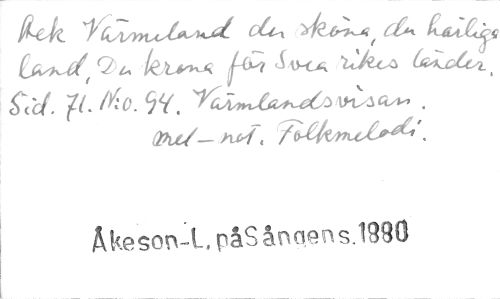 Ack Värmeland du sköna, du härliga
land, Du krona för Svea rikes länder.
Sid. 71. N:o. 94. Värmlandsvisan.
mel-not. Folkmelodi.
Åkeson-L, påSångens.1880